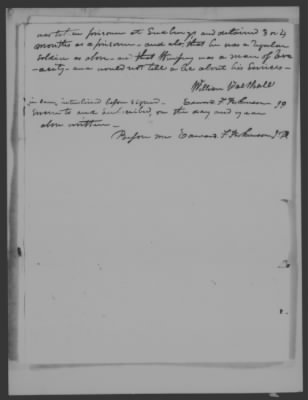 was in prison at and detained 3 or 4
months as a prisoner - and also that he was a regular
soldier as above - that was a man of ver
acity - and would not tell a lie about his services -
William
being interlined before signed. Edward F. J P
Sworn to and subscribed, on the day and year
above written -
Before me Edward F. J P